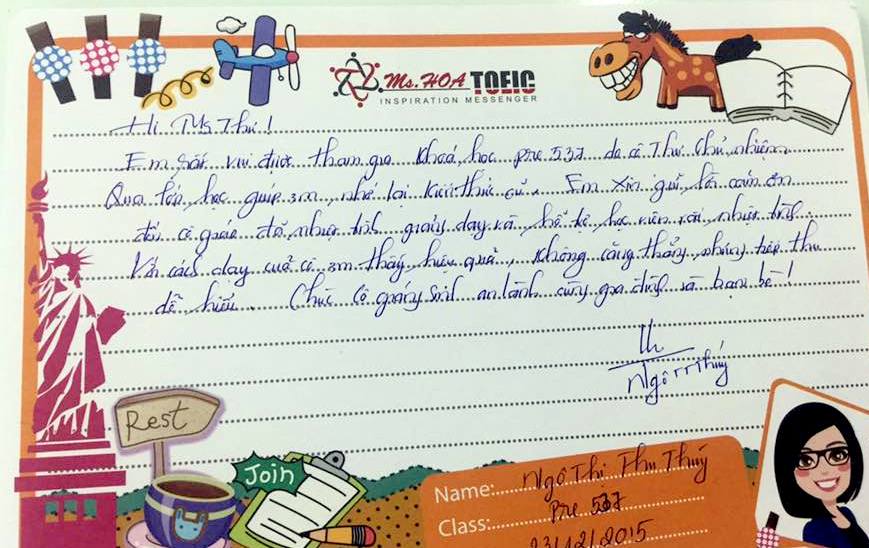 Ms. HOA TOEIC
INSPIRATION MESSENGER
Hi Ms Thư!
Em rất vui được tham gia khoá học pre 537 do cô Thư chủ nhiệm
Qua lớp học giúp em nhớ lại kiến thức cũ. Em xin gửi lời cảm ơn
đến cô giáo đã nhiệt tình giảng dạy và hỗ trợ học viên rất nhiệt tình.
Với cách dạy của cô em thấy hiệu quả, không căng thẳng, nhưng tiếp thu
dễ hiểu. Chúc Cô giáng Sinh an lành cùng gia đình và bạn bè!
Th
Ngô TT Thúy
Rest
Join
Name: Ngô Thị Thu Thúy
Class: Pre 537
23/12/2015